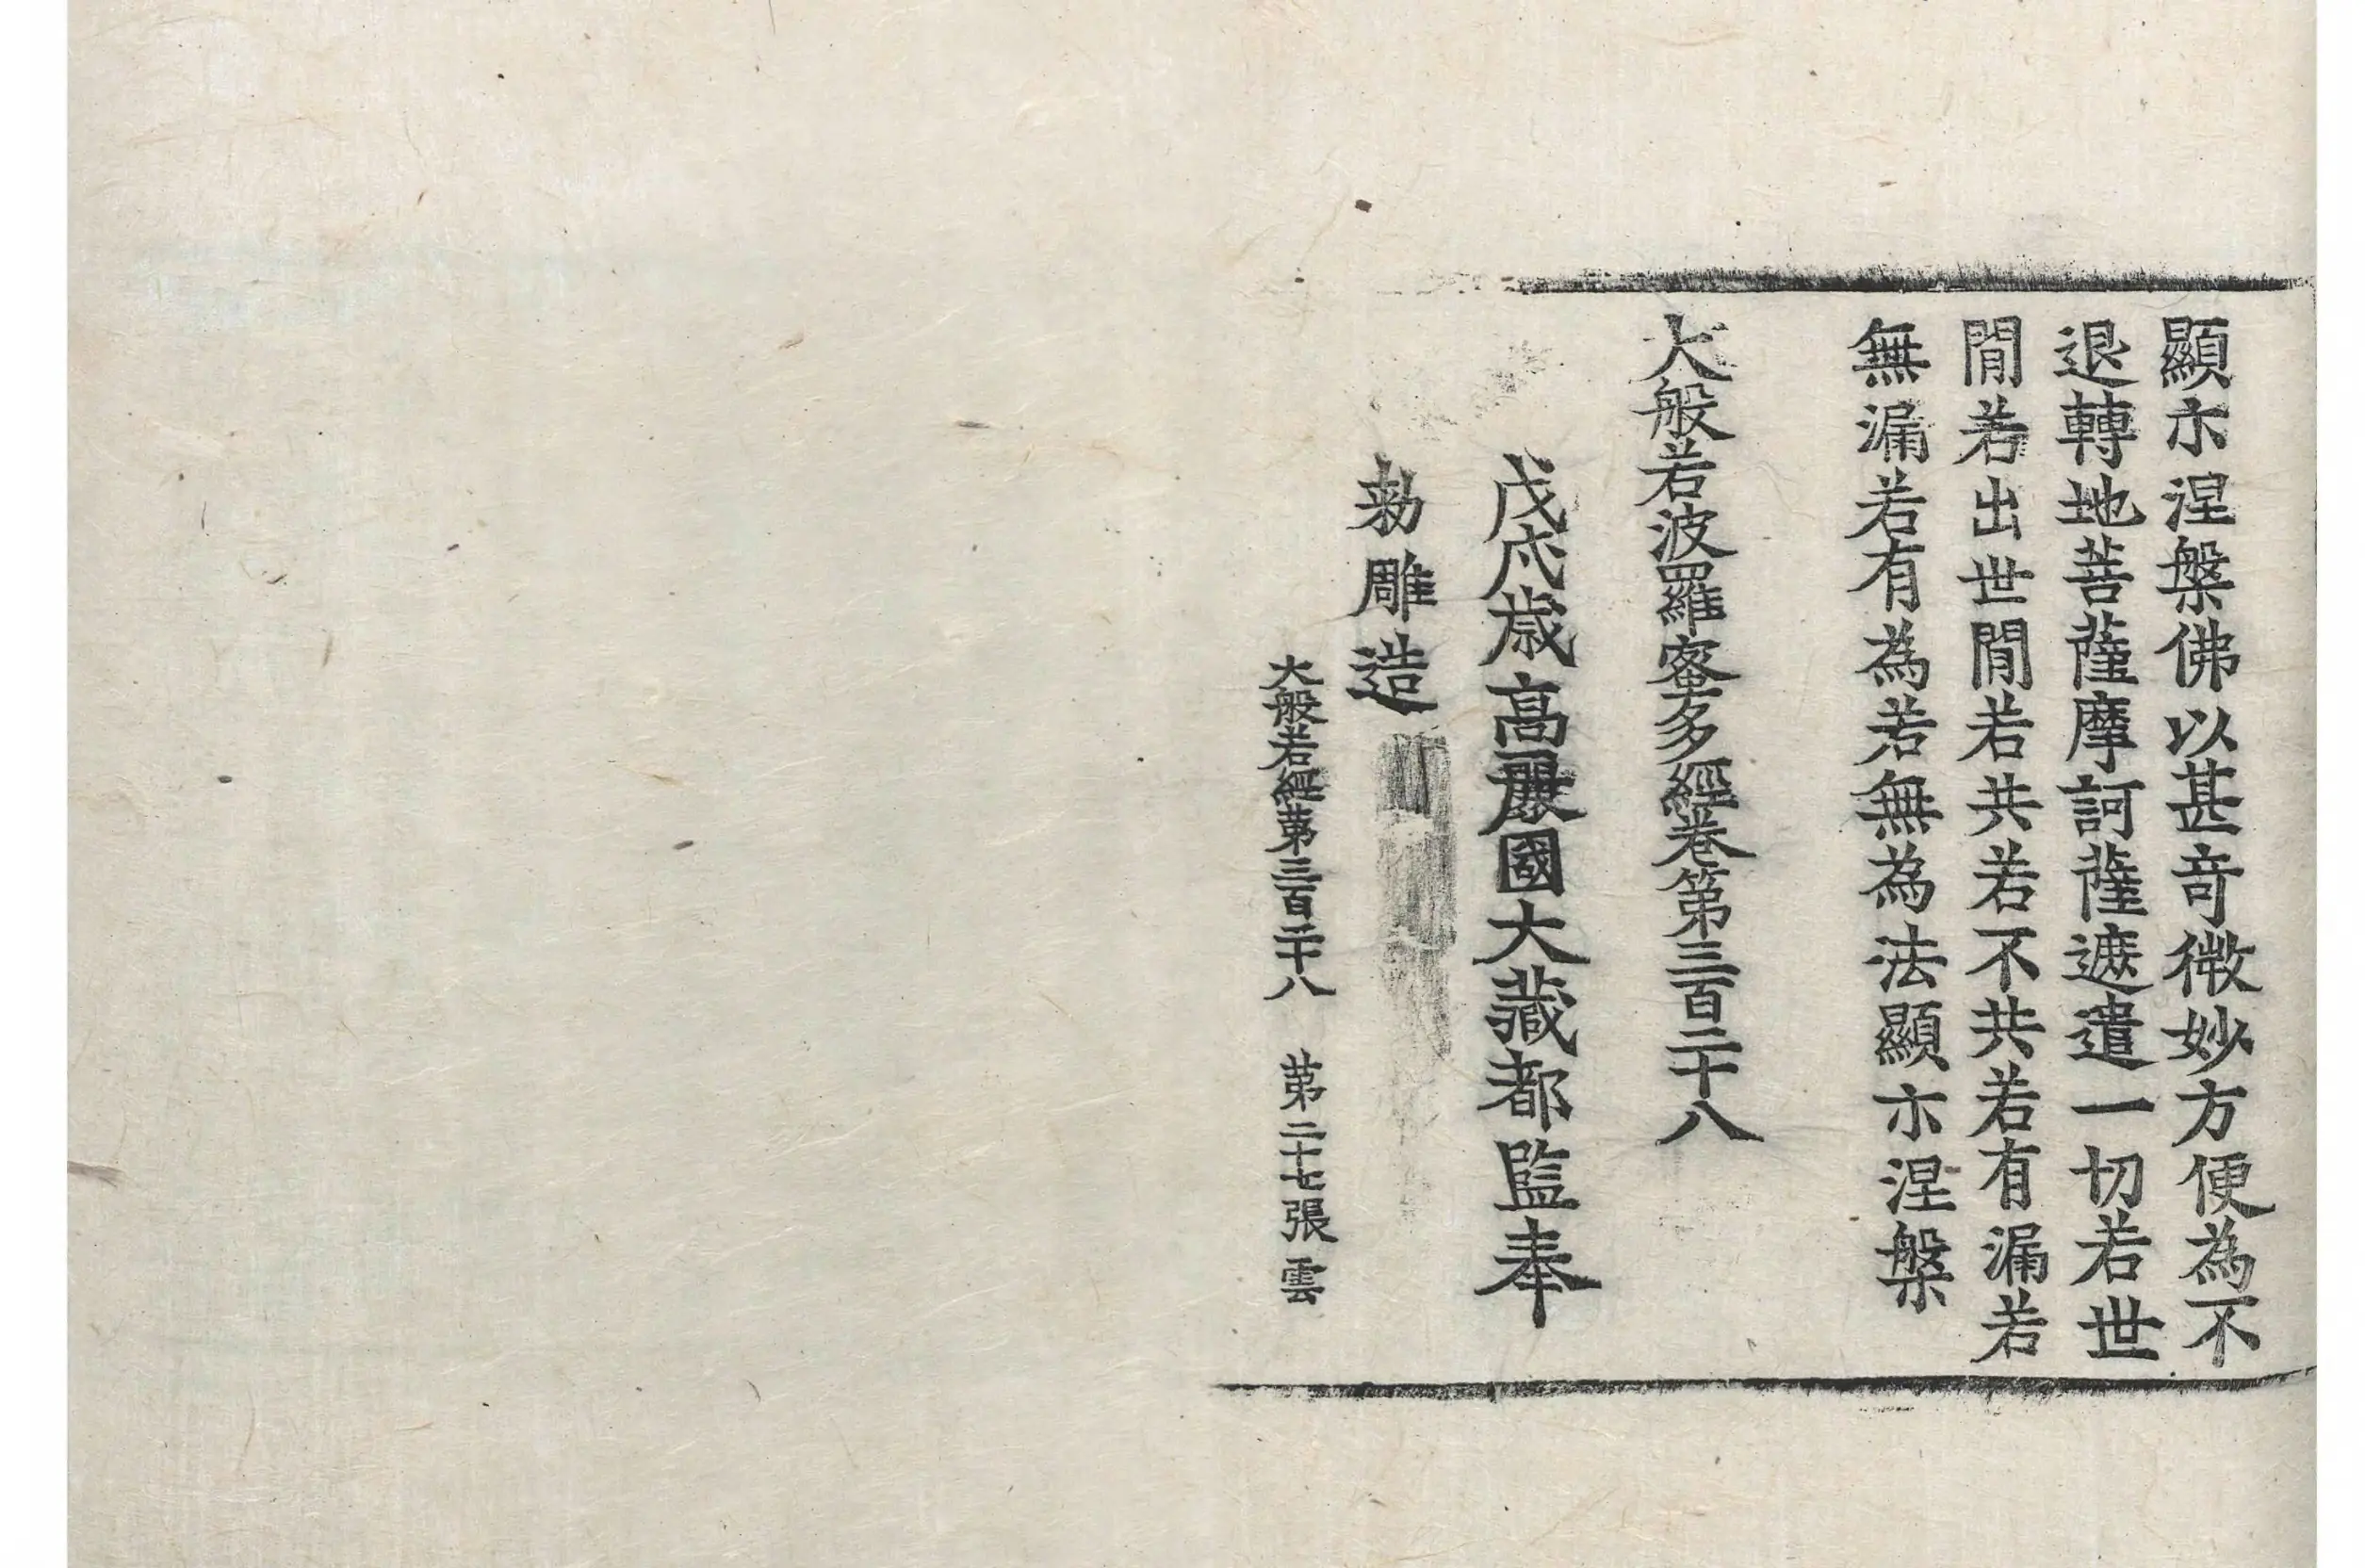 顯示涅槃佛以甚奇微妙方便為不
退轉地菩薩摩訶薩遮遣一切若世
閒若出世閒若共若不共若有漏若
無漏若有為若無為法顯示涅槃
大般若波羅蜜多經卷第三百二十八
戊戌歲高麗國大藏都監奉
勑雕造
大般若經第三百二十八 第二十七張 雲